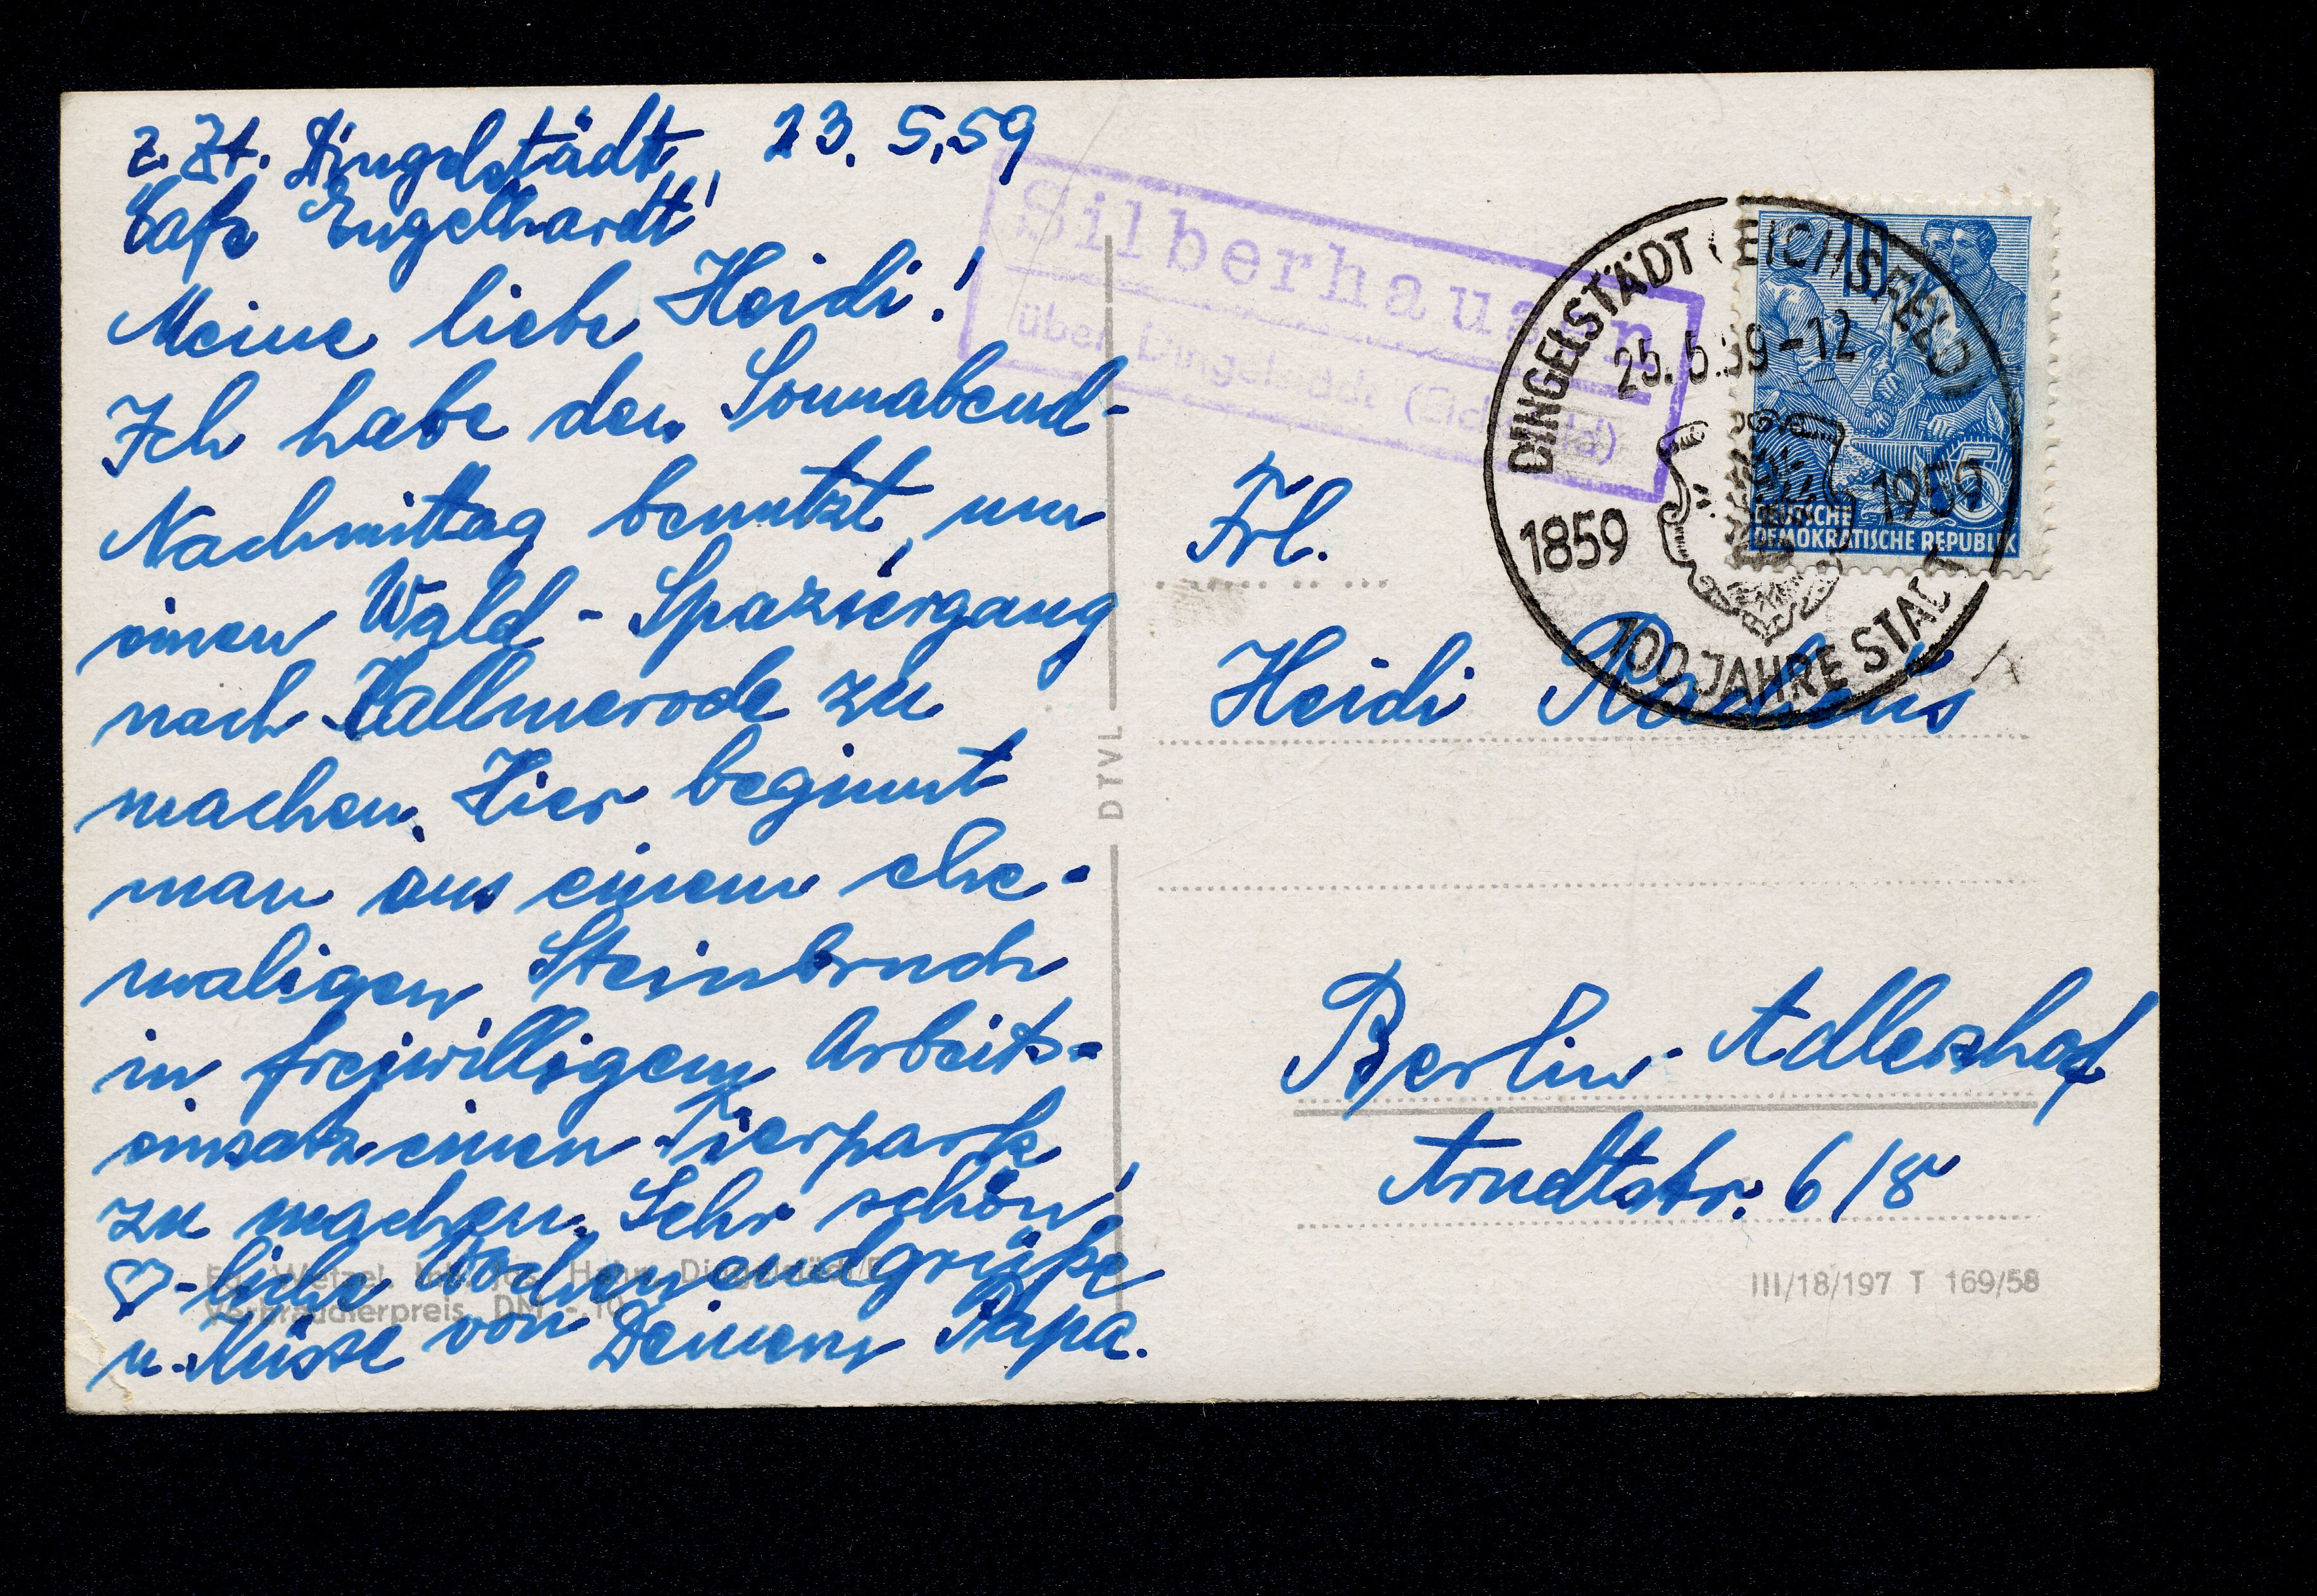 z. Zt. Dingelstädt, 23. 5.59
Cafe Engelhardt!
Meine liebe Heidi!
Ich habe den Sonnabend-
Nachmittag benutzt, um
einen Wald-Spaziergang
nach Kallmerode zu
machen. Hier beginnt
man aus einem ehe-
maligen Steinbruch
in freiwilligem Arbeits-
einsatz einen Tierpark
zu machen. Sehr schön!
♡-liche Wochenendgrüße
u. Küsse von Deinem Papa.
Wetzel, Inh. Jos. Hahn, Dingelstädt/E
Verbraucherpreis DM -.10
DTVL
Silberhausen
über Dingelstädt (Eichsfeld)
DINGELSTÄDT (EICHSFELD)
25.5.59-12
1859 1959
100 JAHRE STADT
10
5
DEUTSCHE
DEMOKRATISCHE REPUBLIK
Frl.
Heidi
Berlin-Adlershof
Arndtstr. 6/8
III/18/197 T 169/58